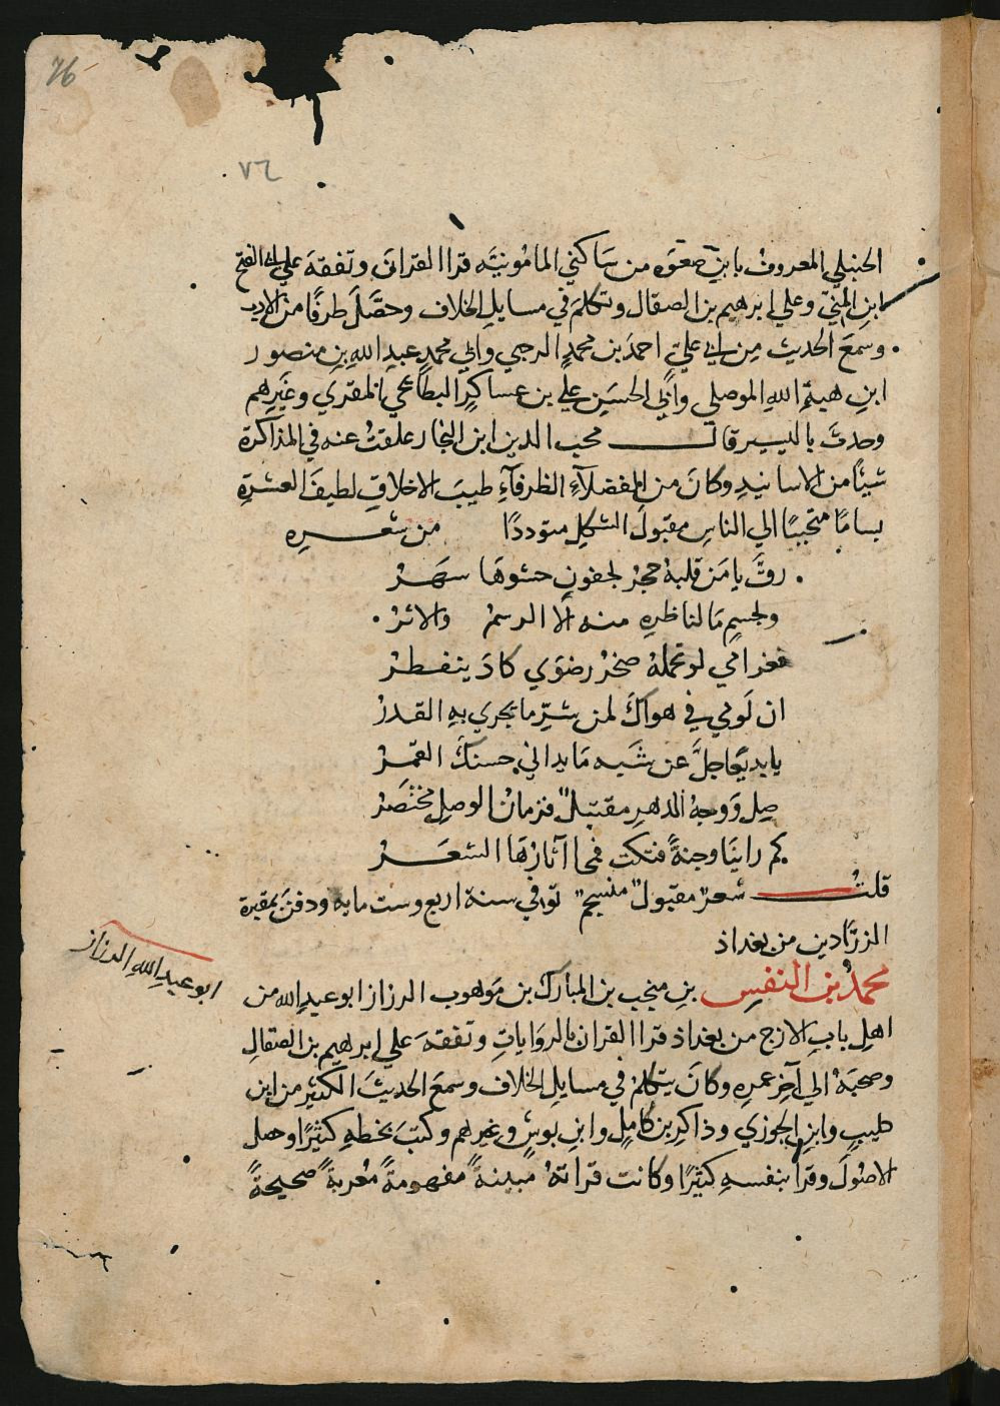 76
٧٦
الحنبلي المعروف بابن صعوه من ساكني المامونيَّه قرا القران وتفقهَ علي ابي الفتح
ابن المنيّ وعلي ابرهيم بن الصقال وتكلمَ في مسايلِ الخلاف وحصَّلَ طرفًا من الادب
وسمعَ الحديث مِن ابي عليّ احمدَ بن محمدٍ الرحبي وابي محمدٍ عبدِ اللهِ بنِ منصور
ابنِ هبةِ اللهِ الموصلي وابي الحسَين علي بن عساكرٍ البطايحي المقري وغيرهم
وحدثَ باليسير قال محب الدين ابن النجار علقتُ عنه في المذاكرة
شيئًا من الاسانيدِ وكانَ من الفضلآءِ الظرفآءِ طيبَ الاخلاقِ لطيفَ العشرةِ
بسامًا متحببًا الي الناسِ مقبولَ الشكلِ متوددًا من شعرِه
رقَّ يا مَن قلبهُ حجرُ لجفونٍ حشوهَا سهَرُ
ولجسمٍ مَا لناظرِه منه الا الرسمُ والاثرُ
فغرامي لو تحملهُ صخرُ رضوَي كادَ ينفطرُ
ان لَومي في هواكَ لمن شرِّ ما يجري بهِ القدرُ
يا بديعًا جلَّ عن شبَه مَا يداني حسنكَ القمرُ
صِل وَوجهُ الدهرِ مقتبلٌ فزمانُ الوصلِ مختصَرُ
كم راينَا وجنةً فتكت فمحا آثارهَا الشعَرُ
قلتُ شعرٌ مقبولٌ منسجمٌ توفي سنة اربع وست مايه ودفنَ بمقبرة
الزرَّادين من بغداذ
ابو عبدِ اللهِ الرزاز
محمدُ بن النفيسِ بنِ منجب بن المبارك بن مَوهوب الرزاز ابو عبدِ الله من
اهلِ بابِ الازج من بغداذ قرا القران بالروَاياتِ وتفقهَ علي ابرهيم بن الصقالِ
وصحبَهُ الي آخرِ عمرِه وكانَ يتكلمُ في مسايلِ الخلاف وسمعَ الحديثَ الكثير من ابن
طبيبٍ وابنِ الجوزي وذاكرِ بن كاملٍ وابنِ بوشٍ وغيرهم وكتبَ بخطهِ كثيرًا وحصل
الاصُولَ وقرأ بنفسهِ كثيرًا وكانت قراتهُ مبينةً مفهومةً مُعربةً صحيحةً